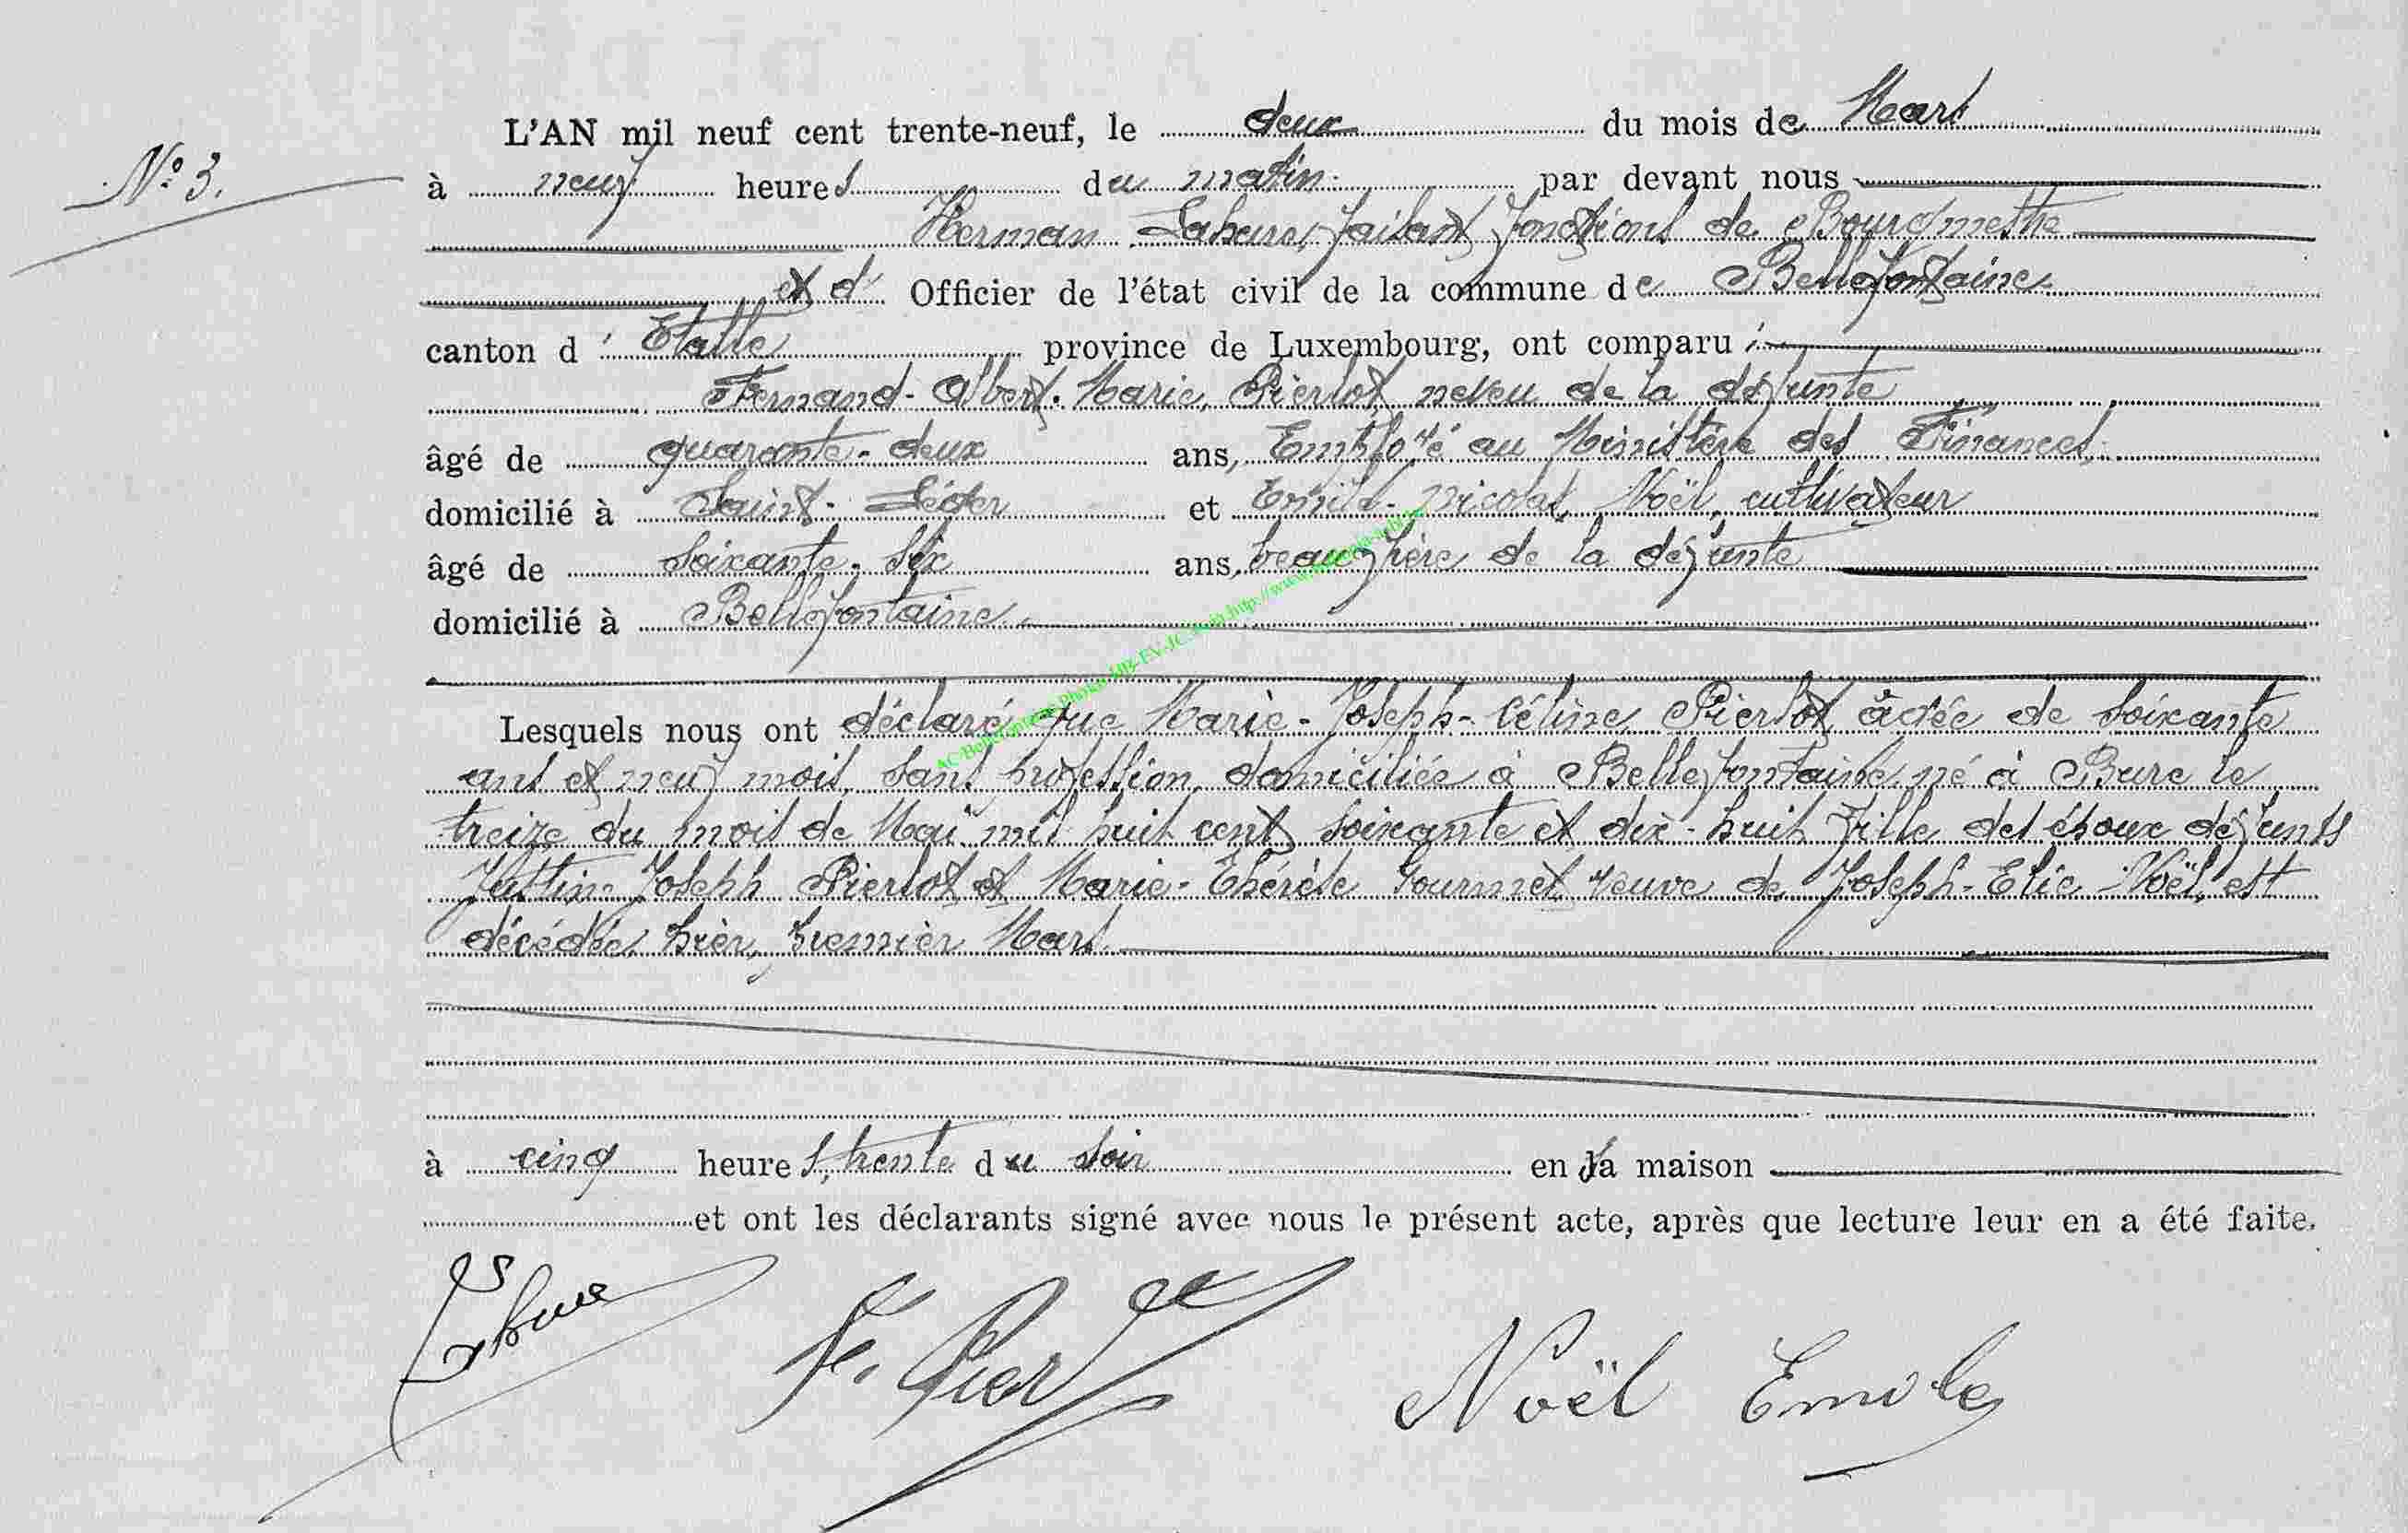 L'AN mil neuf cent trente-neuf, le deux du mois de Mars
N° 3.
à neuf heures du matin par devant nous
Herman Lahure, faisant fonctions de Bourgmestre
et d' Officier de l'état civil de la commune de Bellefontaine
canton d' Etalle province de Luxembourg, ont comparu :
Fernand-Albert-Marie, Pierlot, neveu de la défunte
âgé de quarante-deux ans, Employé au Ministère des Finances,
domicilié à Saint-Léger et Emile-Nicolas, Noël, cultivateur
âgé de soixante-six ans, beau-frère de la défunte
domicilié à Bellefontaine
Lesquels nous ont déclaré que Marie-Joseph-Céline, Pierlot, âgée de soixante
ans et neuf mois, sans profession, domiciliée à Bellefontaine, né à Bure le
treize du mois de Mai mil huit cent soixante et dix-huit, fille des époux défunts
Justin-Joseph Pierlot et Marie-Thérèse Gourmet, veuve de Joseph-Elie Noël, est
décédée hier, premier Mars
à cinq heures, trente du soir en sa maison
et ont les déclarants signé avec nous le présent acte, après que lecture leur en a été faite.
Lahure F. Pierlot Noël Emile